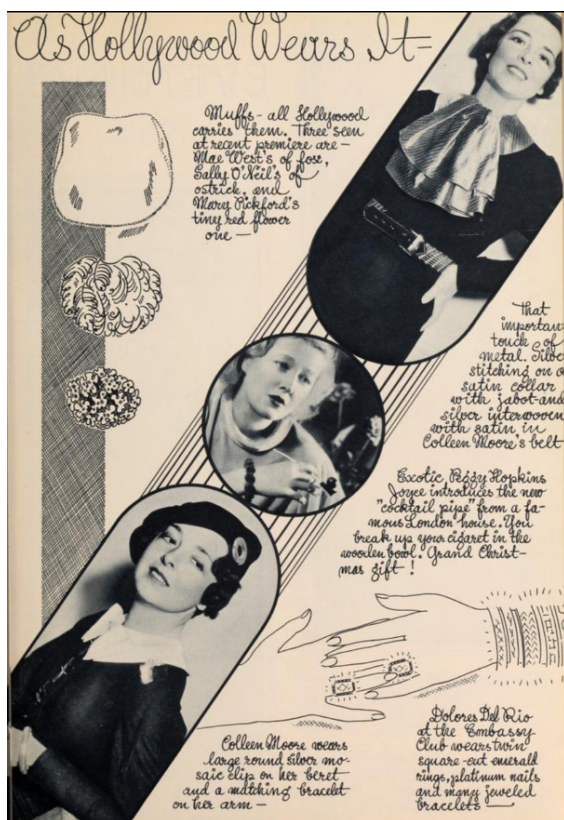 As Hollywood Wears It-
Muffs- all Hollywood
carries them. Three seen
at recent premiere are-
Mae West's of fox,
Sally O'Neil's of
ostrich, and
Mary Pickford's
tiny red flower
one-
That
important
touch of
metal. Silver
stitching on a
satin collar
with jabot-and
silver interwoven
with satin in
Colleen Moore's belt
Exotic Peggy Hopkins
Joyce introduces the new
"cocktail pipe" from a fa-
mous London house. You
break up your cigaret in the
wooden bowl. Grand Christ-
mas gift!
Colleen Moore wears
large round silver mo-
saic clip on her beret
and a matching bracelet
on her arm-
Dolores Del Rio
at the Embassy
Club wears twin
square-cut emerald
rings, platinum nails
and many jeweled
bracelets-